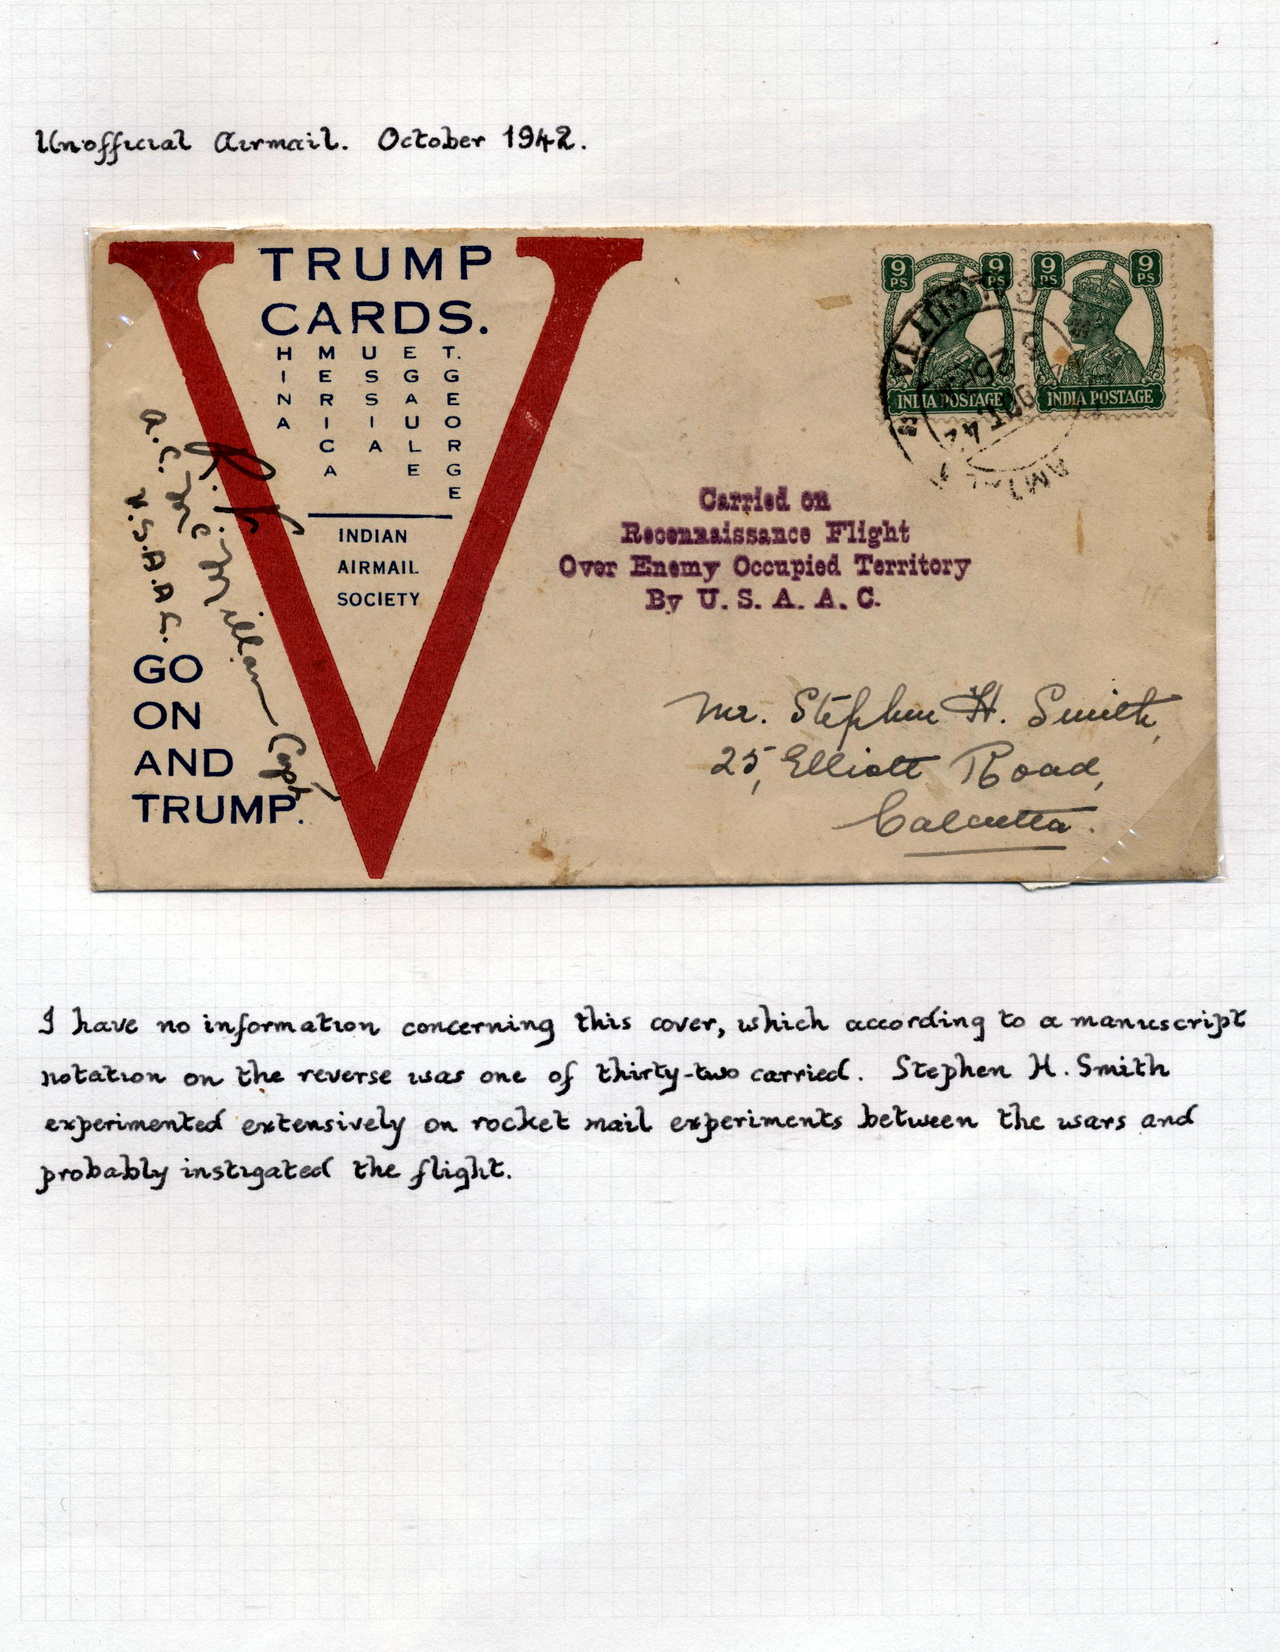 Unofficial Airmail. October 1942.
TRUMP
CARDS.
H M U E T.
I E S G G
N R S A E
A I I U O
C A L R
A E G
E
INDIAN
AIRMAIL
SOCIETY
GO
ON
AND
TRUMP.
Capt
A.C.
U.S.A.A.C.
9 PS 9 PS
INDIA POSTAGE
9 PS 9 PS
INDIA POSTAGE
CALCUTTA
Carried on
Reconnaissance Flight
Over Enemy Occupied Territory
By U. S. A. A. C.
Mr. Stephen H. Smith,
25, Elliott Road,
Calcutta.
I have no information concerning this cover, which according to a manuscript
notation on the reverse was one of thirty-two carried. Stephen H. Smith
experimented extensively on rocket mail experiments between the wars and
probably instigated the flight.